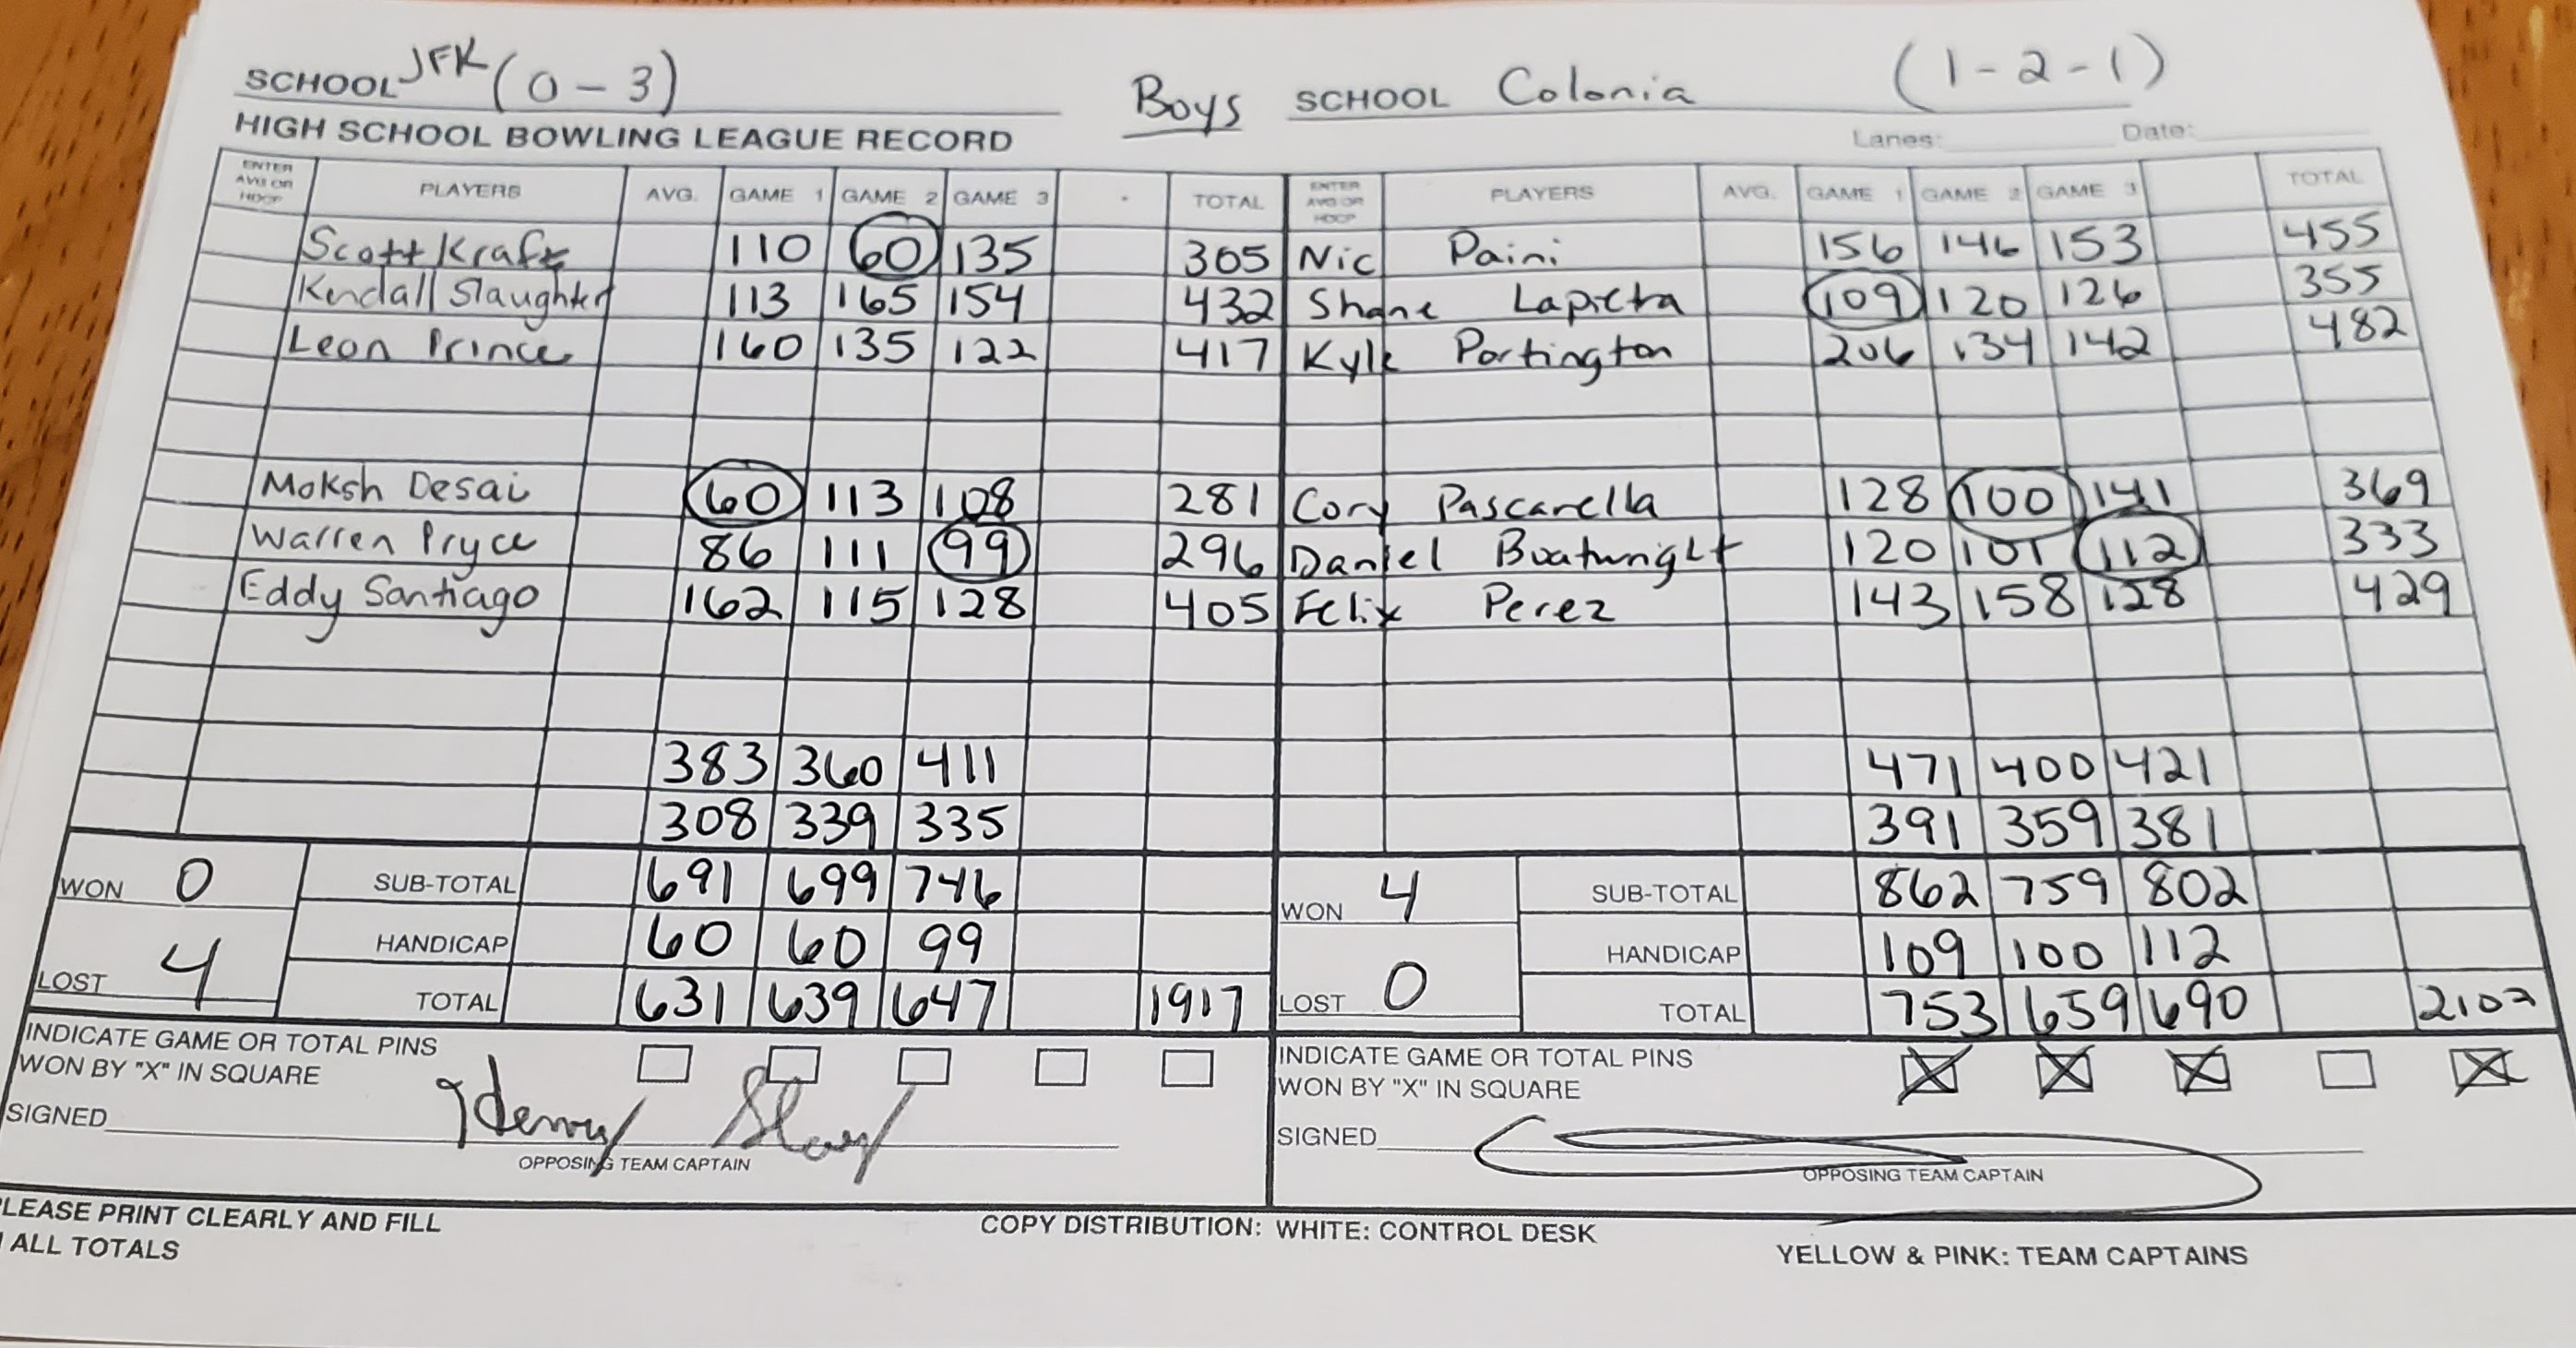 SCHOOL JFK (0-3) Boys SCHOOL Colonia (1-2-1)
HIGH SCHOOL BOWLING LEAGUE RECORD Lanes: Date:
ENTER AVG OR HDCP PLAYERS AVG. GAME 1 GAME 2 GAME 3 TOTAL ENTER AVG OR HDCP PLAYERS AVG. GAME 1 GAME 2 GAME 3 TOTAL
Scott Kraft 110 60 135 305 Nic Paini 156 146 153 455
Kendall Slaughter 113 165 154 432 Shane Lapietra 109 120 126 355
Leon Prince 160 135 122 417 Kyle Partington 206 134 142 482
Moksh Desai 60 113 108 281 Cory Pascarella 128 100 141 369
Warren Pryce 86 111 99 296 Daniel Boatwright 120 101 112 333
Eddy Santiago 162 115 128 405 Felix Perez 143 158 128 429
383 360 411 471 400 421
308 339 335 391 359 381
WON 0 SUB-TOTAL 691 699 746 WON 4 SUB-TOTAL 862 759 802
HANDICAP 60 60 99 HANDICAP 109 100 112
LOST 4 TOTAL 631 639 647 1917 LOST 0 TOTAL 753 659 690 2102
INDICATE GAME OR TOTAL PINS INDICATE GAME OR TOTAL PINS
WON BY "X" IN SQUARE WON BY "X" IN SQUARE
SIGNED Henry SIGNED
OPPOSING TEAM CAPTAIN OPPOSING TEAM CAPTAIN
LEASE PRINT CLEARLY AND FILL COPY DISTRIBUTION: WHITE: CONTROL DESK
ALL TOTALS YELLOW & PINK: TEAM CAPTAINS